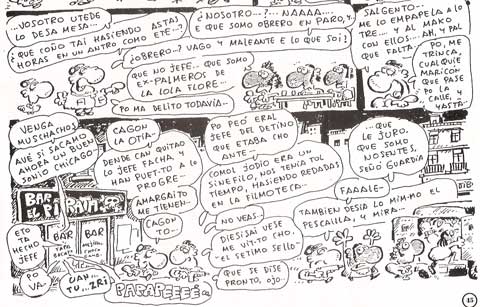 ...VOSOTRO UTEDE
LO DESA MESA...
¿QUE COÑO TAI HASIENDO ASTAS
HORAS EN UN ANTRO COMO ETE..?
¿NOSOTRO...?... NAAAA...
E QUE SOMO OBRERO EN PARO, Y
¿OBRERO..? VAGO Y MALEANTE E LO QUE SOI!
QUE NO JEFE... QUE SOMO
EX-PALMEROS DE
LA LOLA FLORE...
PO MA DELITO TODAVÍA...
SALGENTO...
ME LO EMPAPELA A LO
TRE.... Y AL MAKO
CON ELLOS... AH, Y PAL
QUE FALTA...
PO, ME
TRINCA,
CUALQUIE
MARICON
QUE PASE
PO LA
CALLE, Y
HASTA!
VENGA
MUSCHACHOS,
AVÉ SI SACAMO
AHORA UN BUEN
SONIO CHICAGO...
CAGON
LA OTIA...
DENDE CAN QUITAO
LO JEFE FACHA, Y
HAN PUET-TO A LO
PROGRE...
AMARGAITO
ME TIENEN...
CAGON
TO...
PO PEÓ ERAL
JEFE DEL DETINO
QUE ETABA CHO
ANTE...
COMOL JODIO ERA UN
SINEFILO, NOS TENIA TOL
TIEMPO, HASIENDO REDADAS
EN LA FILMOTECA...
NO VEAS...
DIESISAI VESE
ME VIT-TO CHO
EL SETIMO SELLO
QUE SE DISE
PRONTO, OJO
...QUE
LE JURO,
QUE SOMO
NOSENTES,
SEÑO GUARDIA
FAAALE...
TAMBIEN DESIA LO MIM-MO EL
PESCAILLA, Y MIRA...
BAR
EL PI
BAR
BAR
ETO
TA
HECHO
JEFE
PO
VA..
UAU...
TU...ZRI
PARAPEEEEI
15